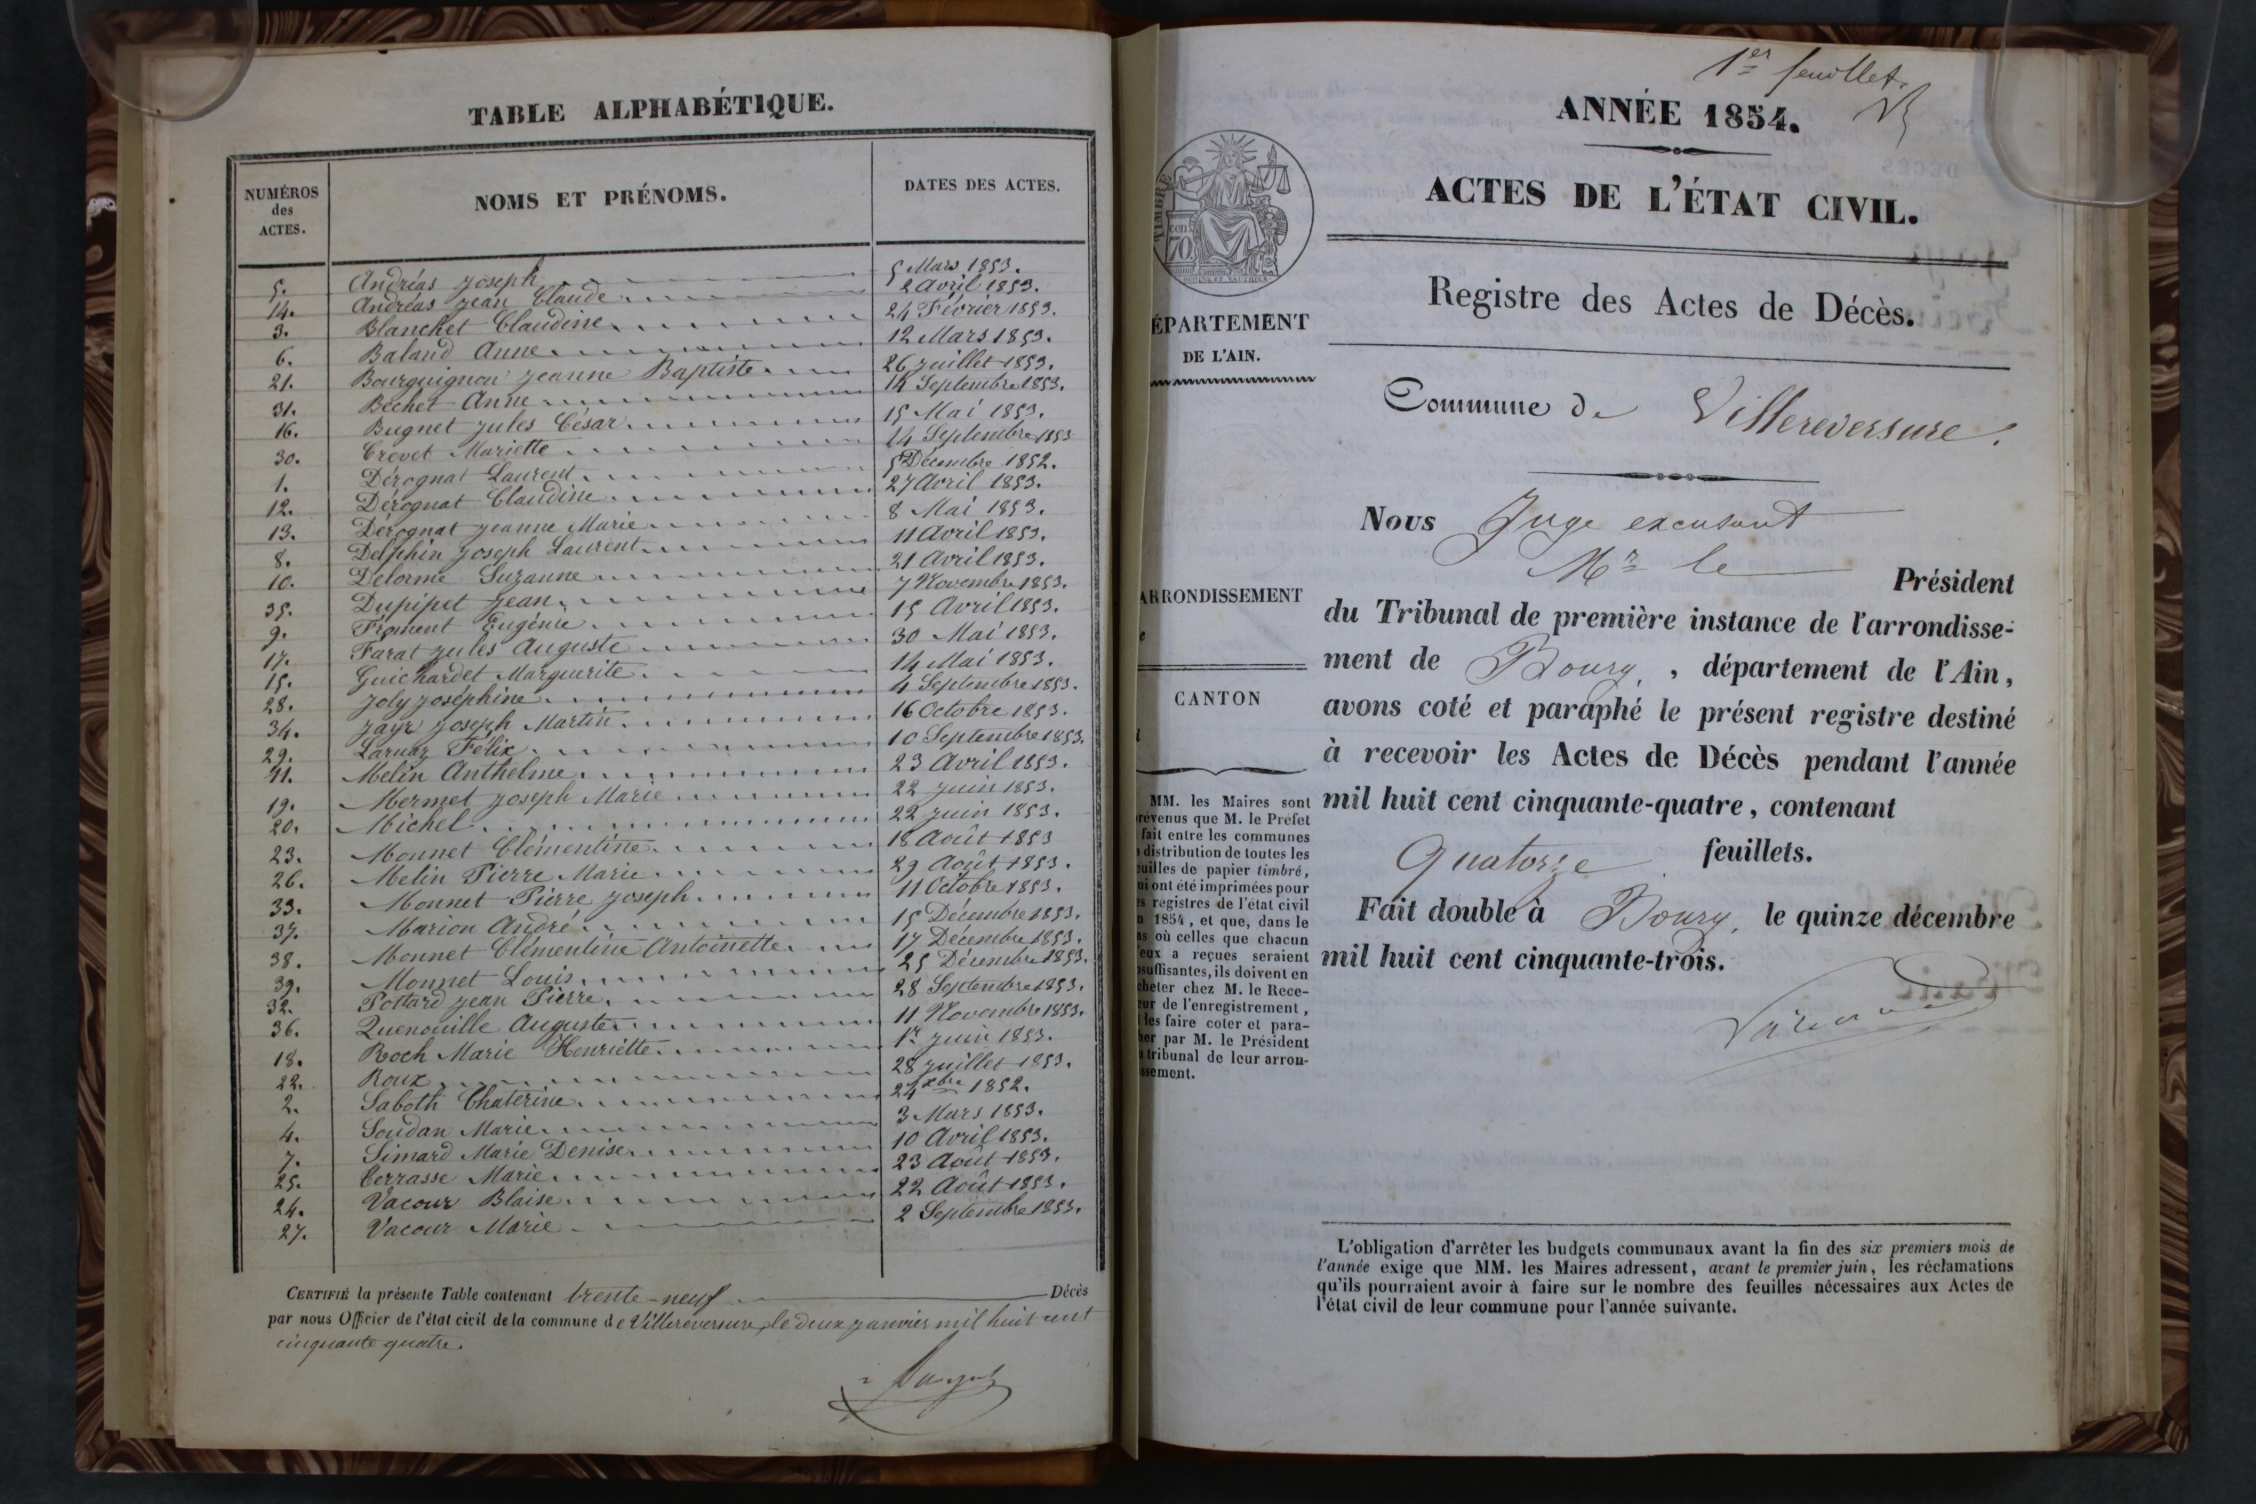 TABLE ALPHABÉTIQUE.
NUMÉROS des ACTES. NOMS ET PRÉNOMS. DATES DES ACTES.
5. Andréas Joseph 5 Mars 1853.
14. Andréas Jean Claude 2 Avril 1853.
3. Blanchet Claudine 24 Février 1853.
6. Baland Anne 12 Mars 1853.
21. Bourguignon Jeanne Baptiste 26 Juillet 1853.
31. Béchet Anne 14 Septembre 1853.
16. Bugnet Jules César 15 Mai 1853.
30. Crévot Mariette 14 Septembre 1853
1. Dérognat Laurent 5 Décembre 1852.
12. Dérognat Claudine 27 Avril 1853.
13. Dérognat Jeanne Marie 8 Mai 1853.
8. Delphin Joseph Laurent 11 Avril 1853.
10. Delorme Suzanne 21 Avril 1853.
35. Dupipet Jean 7 Novembre 1853.
9. Froment Eugénie 15 Avril 1853.
17. Farat Jules Auguste 30 Mai 1853.
15. Guichardet Marguerite 14 Mai 1853.
28. Joly Joséphine 4 Septembre 1853.
34. Jayr Joseph Martin 16 Octobre 1853.
29. Laruaz Félix 10 Septembre 1853.
11. Melin Anthelme 23 Avril 1853.
19. Mermet Joseph Marie 22 Juin 1853.
20. Michel 22 Juin 1853.
23. Monnet Clémentine 18 Août 1853
26. Melin Pierre Marie 29 Août 1853.
33. Monnet Pierre Joseph 11 Octobre 1853.
37. Marion André 15 Décembre 1853.
38. Monnet Clémentine Antoinette 17 Décembre 1853.
39. Monnet Louis 25 Décembre 1853.
32. Pottard Jean Pierre 28 Septembre 1853.
36. Quenouille Auguste 11 Novembre 1853.
18. Roch Marie Henriette 1er Juin 1853.
22. Roux 28 Juillet 1853.
2. Saboth Chaterine 24 xbre 1852.
4. Soudan Marie 3 Mars 1853.
7. Simard Marie Denise 10 Avril 1853.
25. Terrasse Marie 23 Août 1853.
24. Vacour Blaise 22 Août 1853.
27. Vacour Marie 2 Septembre 1853.
CERTIFIÉ la présente Table contenant trente-neuf Décès
par nous Officier de l'état civil de la commune de Villereversure, le deux janvier mil huit cent
cinquante quatre.
1er feuillet.
ANNÉE 1854.
ACTES DE L'ÉTAT CIVIL.
TIMBRE
cen
70.
Registre des Actes de Décès.
ÉPARTEMENT
DE L'AIN.
Commune de Villereversure.
Nous Juge excusant
Mr le Président
ARRONDISSEMENT
du Tribunal de première instance de l'arrondisse-
ment de Bourg, département de l'Ain,
CANTON
avons coté et paraphé le présent registre destiné
à recevoir les Actes de Décès pendant l'année
mil huit cent cinquante-quatre, contenant
Quatorze feuillets.
Fait double à Bourg, le quinze décembre
mil huit cent cinquante-trois.
MM. les Maires sont
révenus que M. le Préfet
fait entre les communes
distribution de toutes les
euilles de papier timbré,
ui ont été imprimées pour
es registres de l'état civil
n 1854, et que, dans le
as où celles que chacun
'eux a reçues seraient
nsuffisantes, ils doivent en
cheter chez M. le Rece-
eur de l'enregistrement,
les faire coter et para-
her par M. le Président
u tribunal de leur arron-
ssement.
L'obligation d'arrêter les budgets communaux avant la fin des six premiers mois de
l'année exige que MM. les Maires adressent, avant le premier juin, les réclamations
qu'ils pourraient avoir à faire sur le nombre des feuilles nécessaires aux Actes de
l'état civil de leur commune pour l'année suivante.